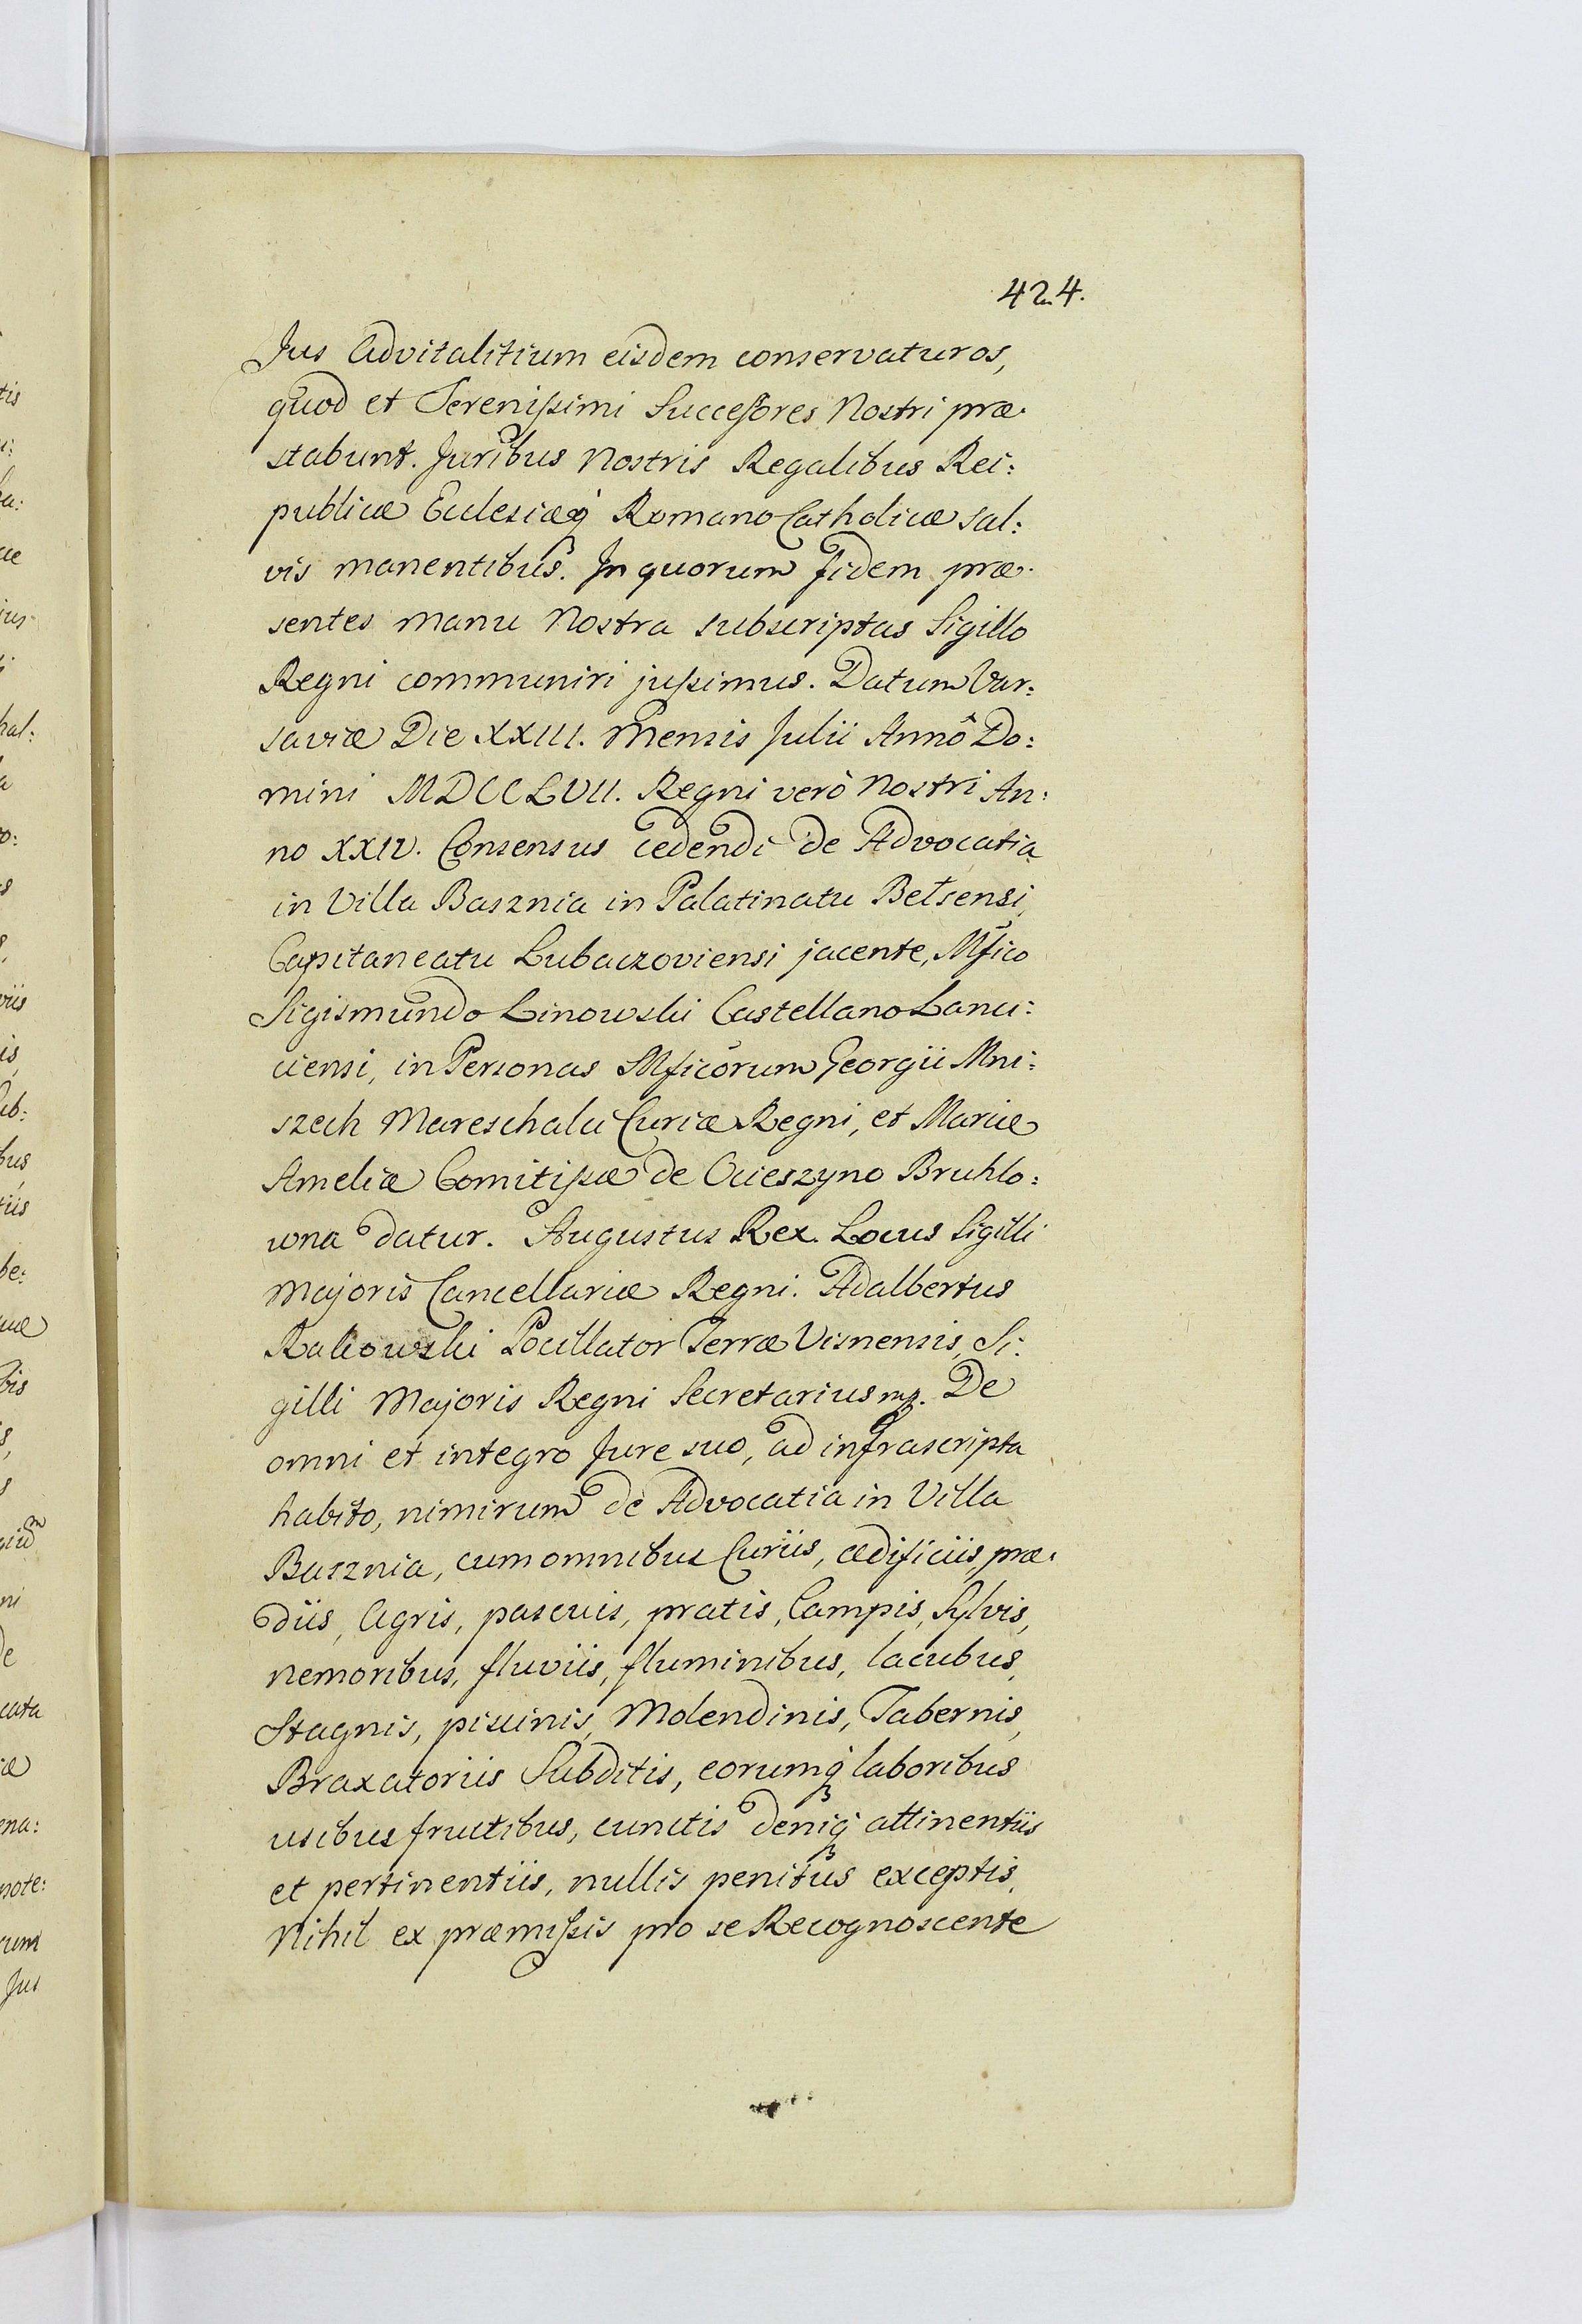 424.
Jus Advitalitium eisdem conservaturos,
quod et Serenissimi Successores Nostri præ.
stabunt. Juribus Nostris Regalibus Rei:
publicæ Eclesiæq̃ Romano Catholicæ sal:
vis manentibus. In quorum fidem præ.
sentes manu Nostra subscriptas Sigillo
Regni communiri jussimus. Datum Var:
saviæ Die XXIII. Mensis Julii Annô Do:
mini MDCCLVII. Regni verò Nostri An:
no XXIV. Consensus cedendi de Advocatia
in Villa Basznia in Palatinatu Bełsensi
Capitaneatu Lubaczoviensi jacente, Mfico
Sigismundo Linowski Castellano Lanci:
ciensi, in Personas Mficorum Georgii Mni:
szech Mareschalci Curiæ Regni, et Mariæ
Ameliæ Comitissæ de Ocieszyno Bruhlo:
wna datur. Augustus Rex. Locus Sigilli
Majoris Cancellariæ Regni. Adalbertus
Rakowski Pocillator Terræ Visnensis, Si:
gilli Majoris Regni Secretarius mp. De
omni et integro Jure suo, ad infrascripta
habito, nimirum de Advocatia in Villa
Basznia, cum omnibus Curiis, ædificiis, præ.
diis, Agris, pascuis, pratis, Campis, Sylvis,
nemoribus, fluviis, fluminibus, lacubus,
Stagnis, piscinis, Molendinis, Tabernis,
Braxatoriis Subditis, eorumq̃ laboribus
usibus fructibus, cunctis deniq̃ attinentiis
et pertinentiis, nullis penitus exceptis,
Nihil ex præmissis pro se Recognoscente